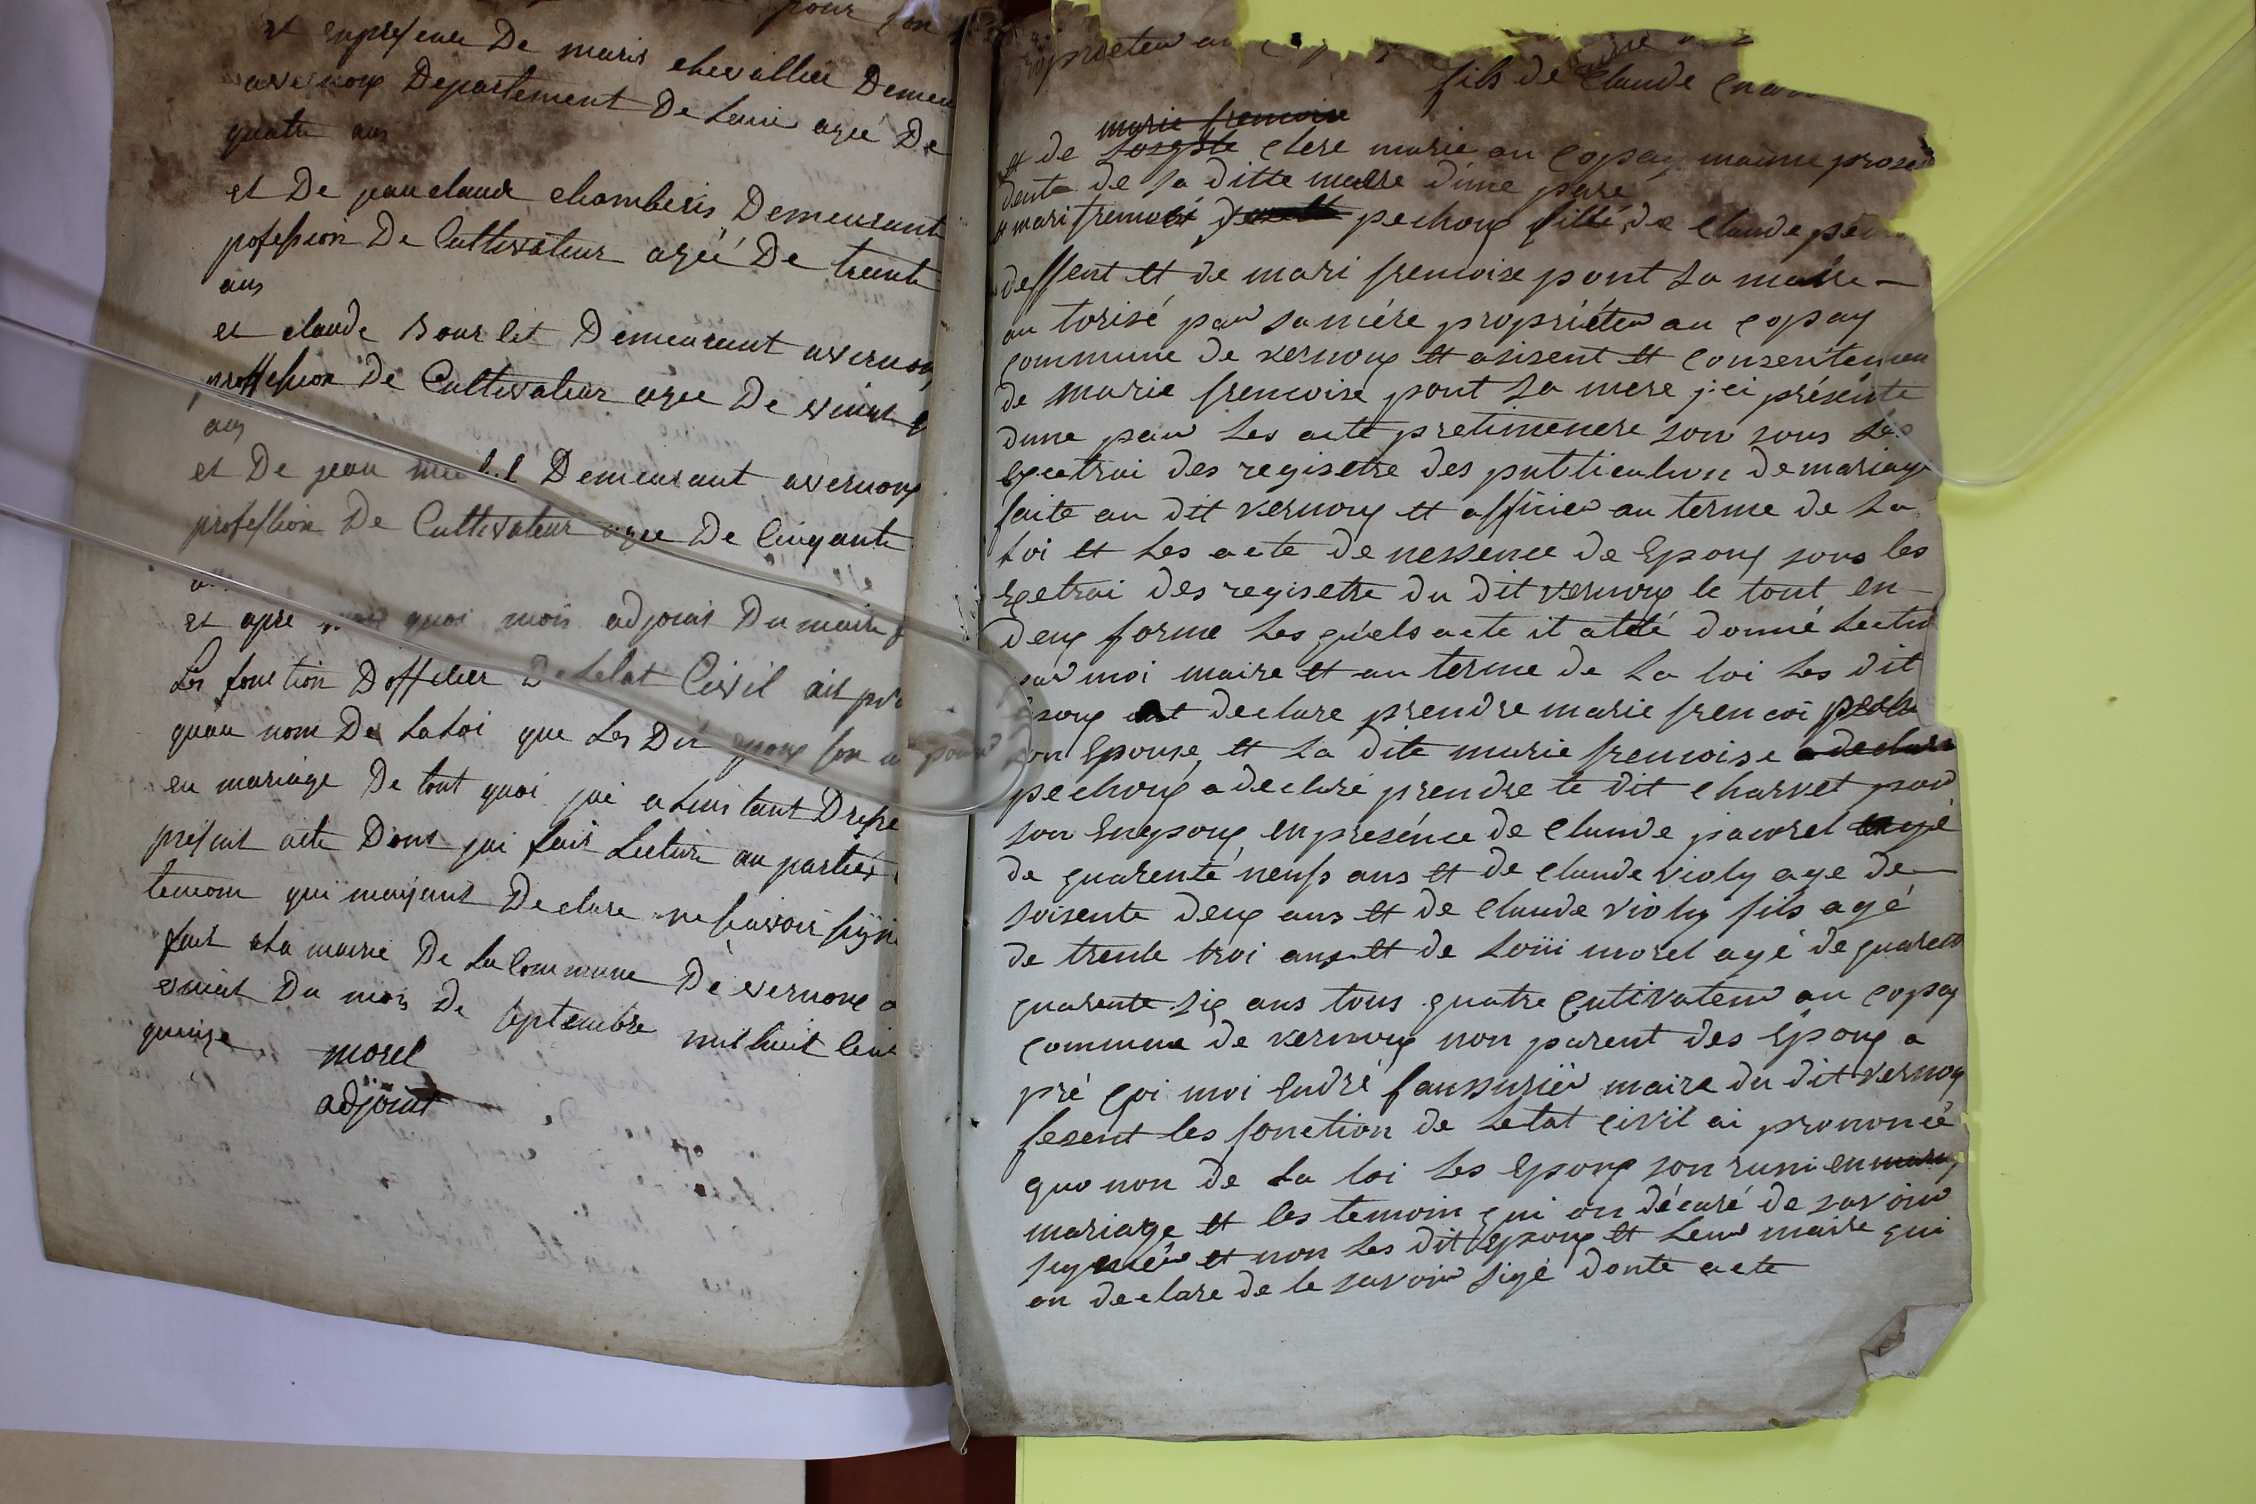 pour son
et enpresence De maris chevallier Demeu
avernoux Departement De Lain agé De
quatre ans
et De jean claude chamberis Demeurant
profession De Cultivateur agéé De trente
ans
et claude Bourlet Demeurant avernoux
proffession De Cultivateur agee De vint
ans
et De jean Demeurant avernoux
profession De Cultivateur agee De Cinqante
et apre quoi mois adjoint Du maire
Les fonction Dofficier De Letat Civil ait pro
quau nom De LaLoi que Les Dit epoux son u
en mariage De tout quoi jai alinstant Dresse
present acte Dont jai fait Lecture au parties
temoin qui mayant Declare ne savoir sign
fait a La mairie De La Commune De vernoux
vient Du mois De septembre mil huit Cent
quinze
morel
adjoint
proprieter au
fils de Claude
marie frencoise
et de clere marie au copay maime prosé
dente de sa ditte maere d'une pare
et mari frencoise pechoux fille de Claude pe
deffent et de mari frencoise pont sa maire
autorisé par sa mére propriéter au copay
commune de vernoux et asisent et consentemen
de marie frencoise pont sa mere j'ci présente
dune par Les acte pretimenere son sous Les
Exetrai des regisetre des publication de mariage
faite au dit vernoux et afficier au terme de La
Loi et Les acte de nessence de Epoux sous les
Exetrai des regisetre du dit vernoux le tout en
deux forme Les quels acte it a été donné Lectu
par moi maire et au terme de La loi Les dit
epoux ont declare prendre marie frencoi pechu
son Epouse et La dite marie frencoise a declare
pechoux a declaré prendre le dit charvet pour
son Enpoux enpresénce de Claude jacorel agé
de quarenté neufs ans et de Claude violy age de
soisente deux ans et de Claude violy fils agé
de trente troi ans et de Loüi morel agé de quarent
quarente six ans tous quatre Cutivateur au copay
commune de vernoux non parent des Epoux a
pré Qoi moi Endré faussuriér maire du dit vernoux
fesent les fonction de Letat civil ai prononcé
quo non de La loi Les Epoux son runi en mariag
mariage et les temoin qui on décaré de savoir
signiér et non Les dit Epoux et Leur maire qui
on declare de le savoir sigé donte acte